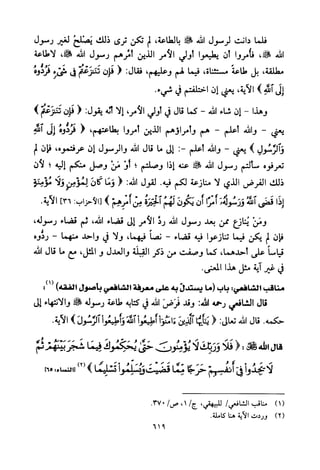 فلما دانت لرسول الله ﷺ بالطاعة، لم تكن ترى ذلك يَصْلُحُ لغير رسول
الله ﷺ، فأُمروا أن يطيعوا أولي الأمر الذين أمّرهم رسول الله ﷺ، لا طاعة
مطلقة، بل طاعةً مستثناة، فيما لهم وعليهم، فقال: ﴿ فَإِن تَنَٰزَعۡتُمۡ فِى شَىۡءٍ فَرُدُّوهُ
إِلَى ٱللَّهِ ﴾ الآية، يعني إن اختلفتم في شيء.
وهذا - إن شاء الله - كما قال في أولي الأمر، إلا أنّه يقول: ﴿ فَإِن تَنَٰزَعۡتُمۡ ﴾
يعني - والله أعلم - هم وأمراؤهم الذين أمروا بطاعتهم، ﴿ فَرُدُّوهُ إِلَى ٱللَّهِ
وَٱلرَّسُولِ ﴾ يعني - والله أعلم -: إلى ما قال الله والرسول إن عرفتموه، فإن لم
تعرفوه سألتم رسول الله ﷺ عنه إذا وصلتم؛ أو مَنْ وصل منكم إليه؛ لأن
ذلك الفرض الذي لا منازعة لكم فيه. لقول الله: ﴿ وَمَا كَانَ لِمُؤۡمِنٍ وَلَا مُؤۡمِنَةٍ
إِذَا قَضَى ٱللَّهُ وَرَسُولُهُۥٓ أَمۡرًا أَن يَكُونَ لَهُمُ ٱلۡخِيَرَةُ مِنۡ أَمۡرِهِمۡ ﴾ [الأحزاب: ٣٦] الآية.
ومَنْ يُنازع ممن بعد رسول الله ردَّ الأمر إلى قضاء الله، ثم قضاء رسوله،
فإن لم يكن فيما تنازعوا فيه قضاء - نصاً فيهما، ولا في واحد منهما - ردُّوه
قياساً على أحدهما، كما وصفت من ذكر القِبلَة والعدل و المثل، مع ما قال الله
في غير آية مثل هذا المعنى.
مناقب الشافعي: باب (ما يستدل به على معرفة الشافعي بأصول الفقه) (١)
قال الشافعي رحمه الله: وقد فَرَضَ الله في كتابه طاعة رسوله ﷺ والانتهاء إلى
حكمه. قال الله تعالى: ﴿ يَٰٓأَيُّهَا ٱلَّذِينَ ءَامَنُوٓاْ أَطِيعُواْ ٱللَّهَ وَأَطِيعُواْ ٱلرَّسُولَ ﴾ الآية.
قال الله ﷻ: ﴿ فَلَا وَرَبِّكَ لَا يُؤۡمِنُونَ حَتَّىٰ يُحَكِّمُوكَ فِيمَا شَجَرَ بَيۡنَهُمۡ ثُمَّ
لَا يَجِدُواْ فِىٓ أَنفُسِهِمۡ حَرَجًا مِّمَّا قَضَيۡتَ وَيُسَلِّمُواْ تَسۡلِيمًا ﴾ (٢) [النساء: ٦٥]
(١) مناقب الشافعي/ للبيهقي، ج/ ١، ص/ ٣٧٠.
(٢) وردت الآية هنا كاملة.
٦١٩